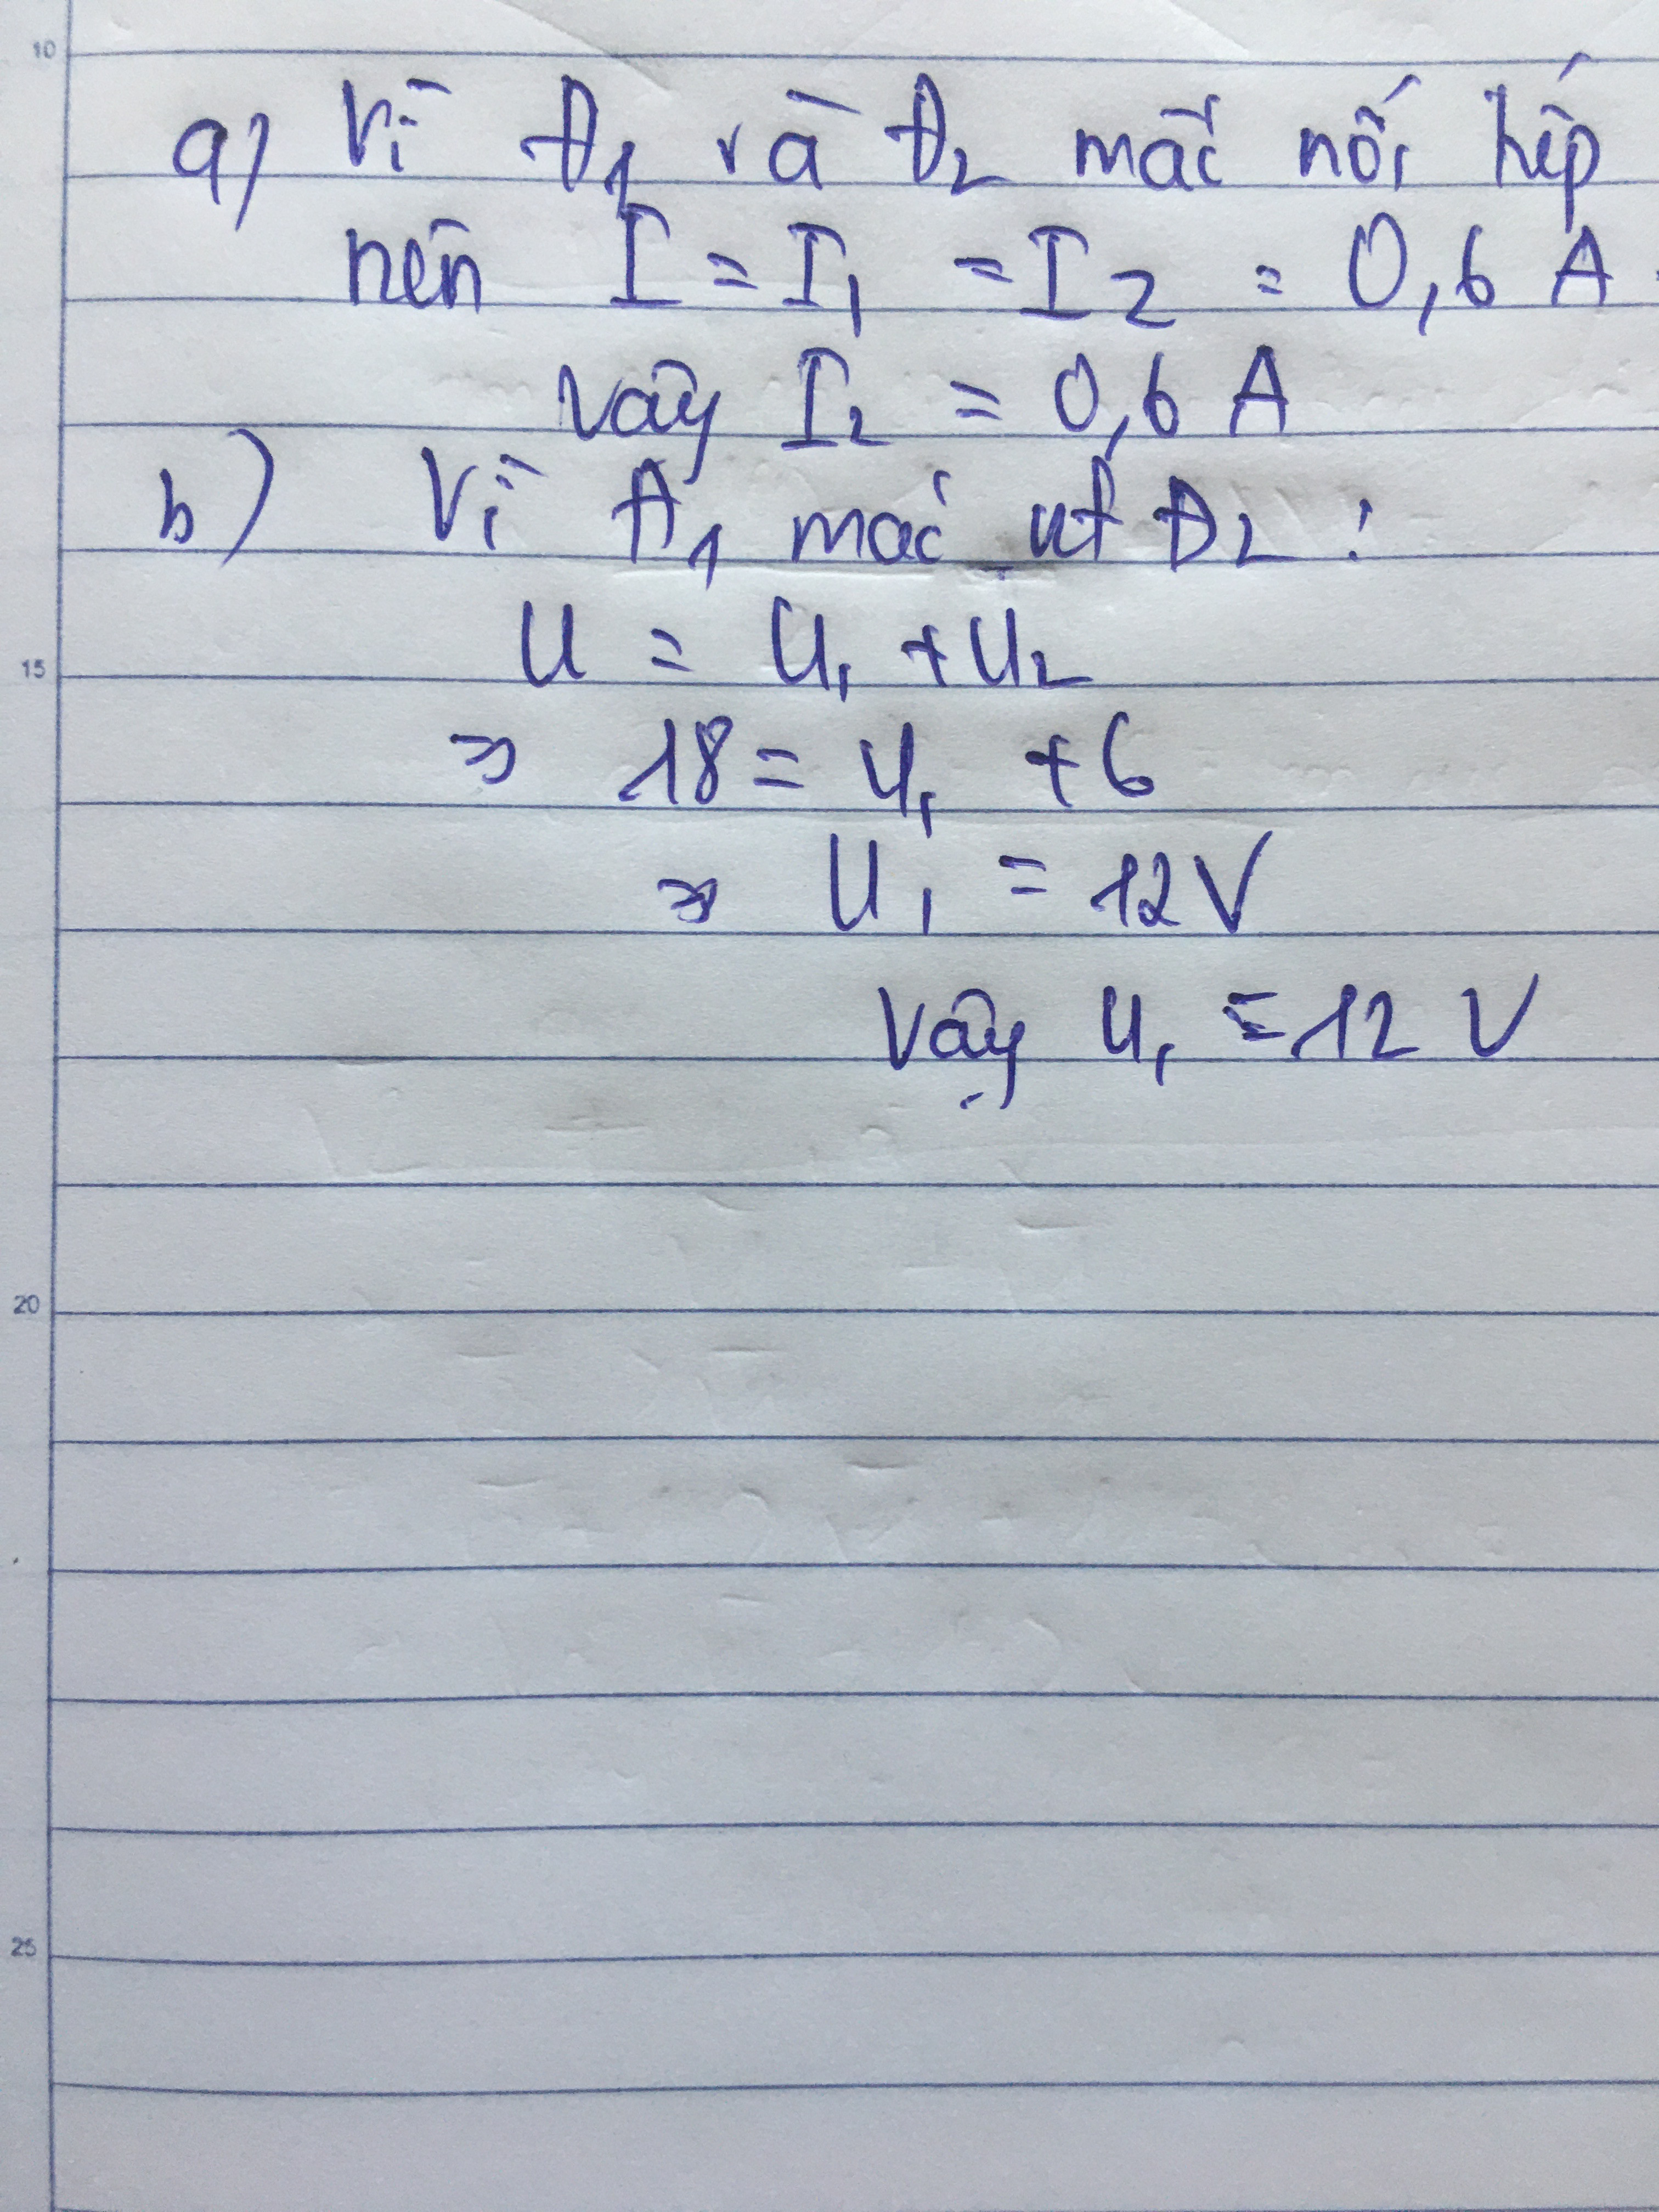 10
a) Vì Đ1 và Đ2 mắc nối tiếp
nên I = I1 = I2 = 0,6 A
vậy I2 = 0,6 A
b) Vì Đ1 mắc nt Đ2 :
15
U = U1 + U2
=> 18 = U1 + 6
=> U1 = 12V
Vậy U1 = 12 V
20
25